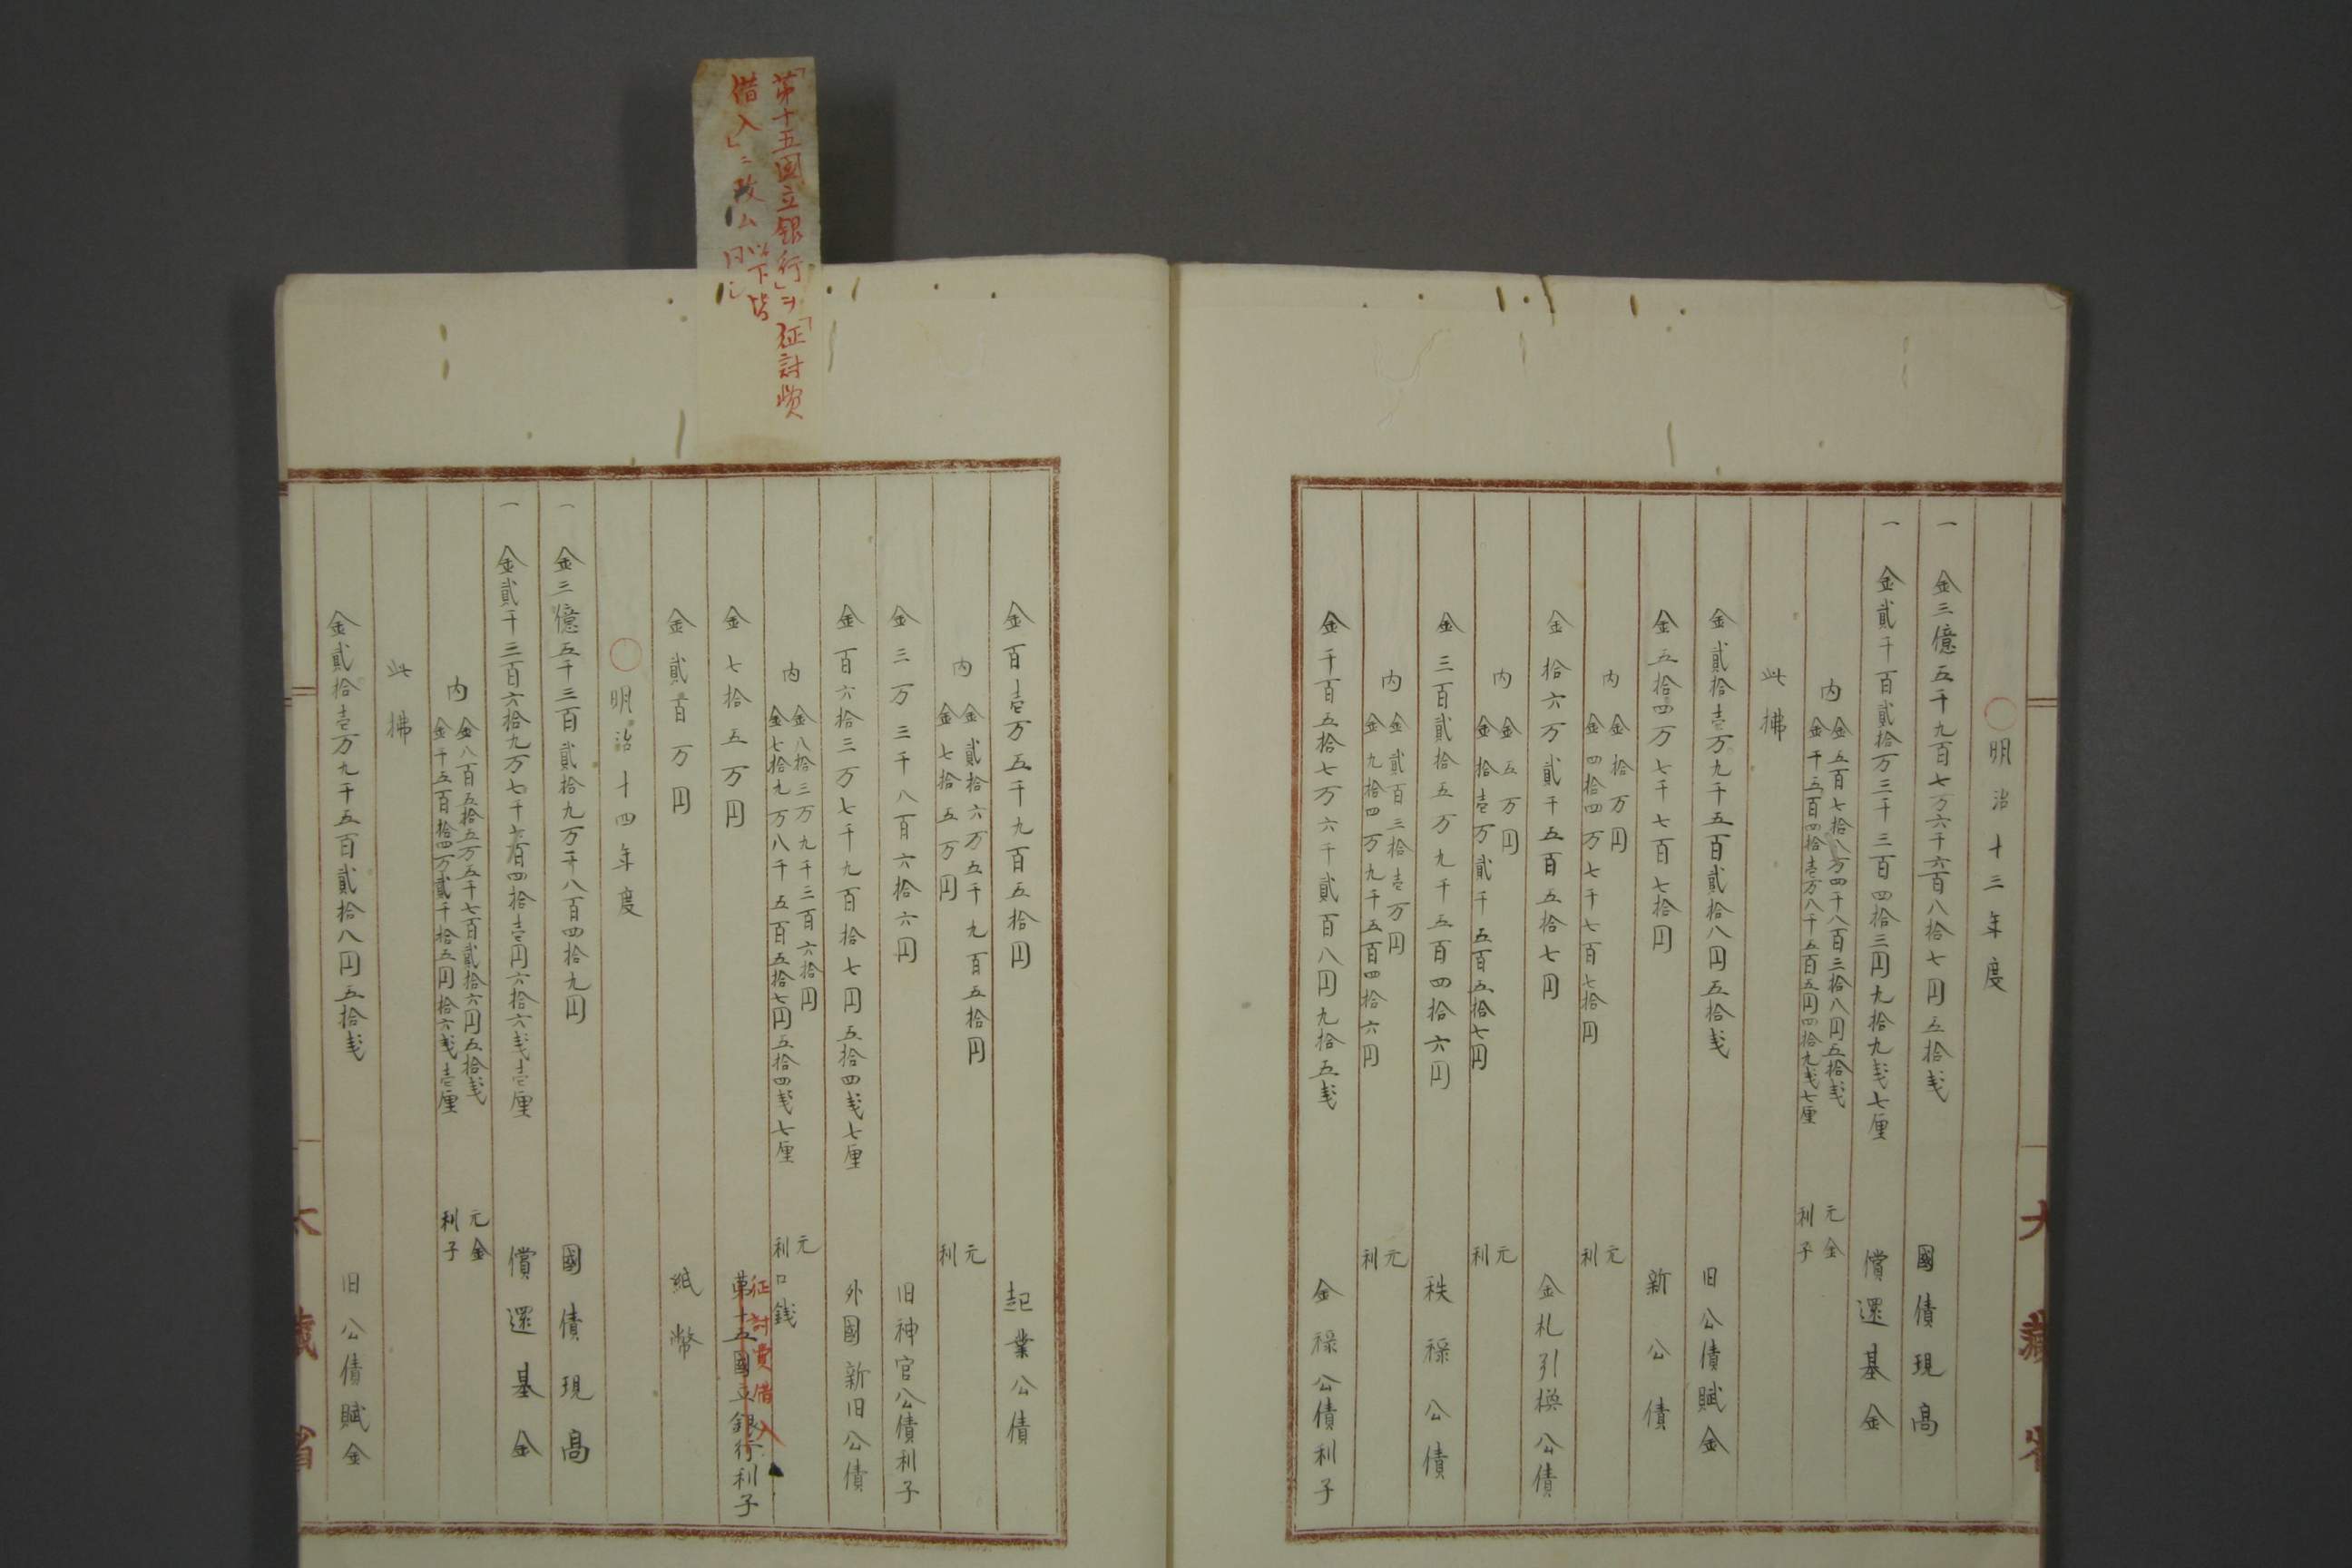 ○明治十三年度
一 金三億五千九百七万六千六百八拾七円五拾戋 國債現高
一 金貳千百貳拾万三千三百四拾三円九拾九戋七厘 償還基金
内 金五百七拾八万四千八百三拾八円五拾戋 元金
金千五百四拾壱万八千五百五円四拾九戋七厘 利子
此拂
金貳拾壱万九千五百貳拾八円五拾戋 旧公債賦金
金五拾四万七千七百七拾円 新公債
内 金拾万円 元
金四拾四万七千七百七拾円 利
金拾六万貳千五百五拾七円 金札引換公債
内 金五万円 元
金拾壱万貳千五百五拾七円 利
金三百貳拾五万九千五百四拾六円 秩禄公債
内 金貳百三拾壱万円 元
金九拾四万九千五百四拾六円 利
金千百五拾七万六千貳百八円九拾五戋 金禄公債利子
大藏省
「第十五国立銀行」ヲ「征討費
借入」ニ改ム以下皆
同シ
金百壱万五千九百五拾円 起業公債
内 金貳拾六万五千九百五拾円 元
金七拾五万円 利
金三万三千八百六拾六円 旧神官公債利子
金百六拾三万七千九百拾七円五拾四戋七厘 外國新旧公債
内 金八拾三万九千三百六拾円 元
金七拾九万八千五百五拾七円五拾四戋七厘 利口銭
金七拾五万円 第十五國立銀行利子
征討費借入
金貳百万円 紙幣
○明治十四年度
一 金三億五千三百貳拾九万千八百四拾九円 國債現高
一 金貳千三百六拾九万七千七百四拾壱円六拾六戋壱厘 償還基金
内 金八百五拾五万五千七百貳拾六円五拾戋 元金
金千五百拾四万貳千拾五円拾六戋壱厘 利子
此拂
金貳拾壱万九千五百貳拾八円五拾戋 旧公債賦金
大藏省